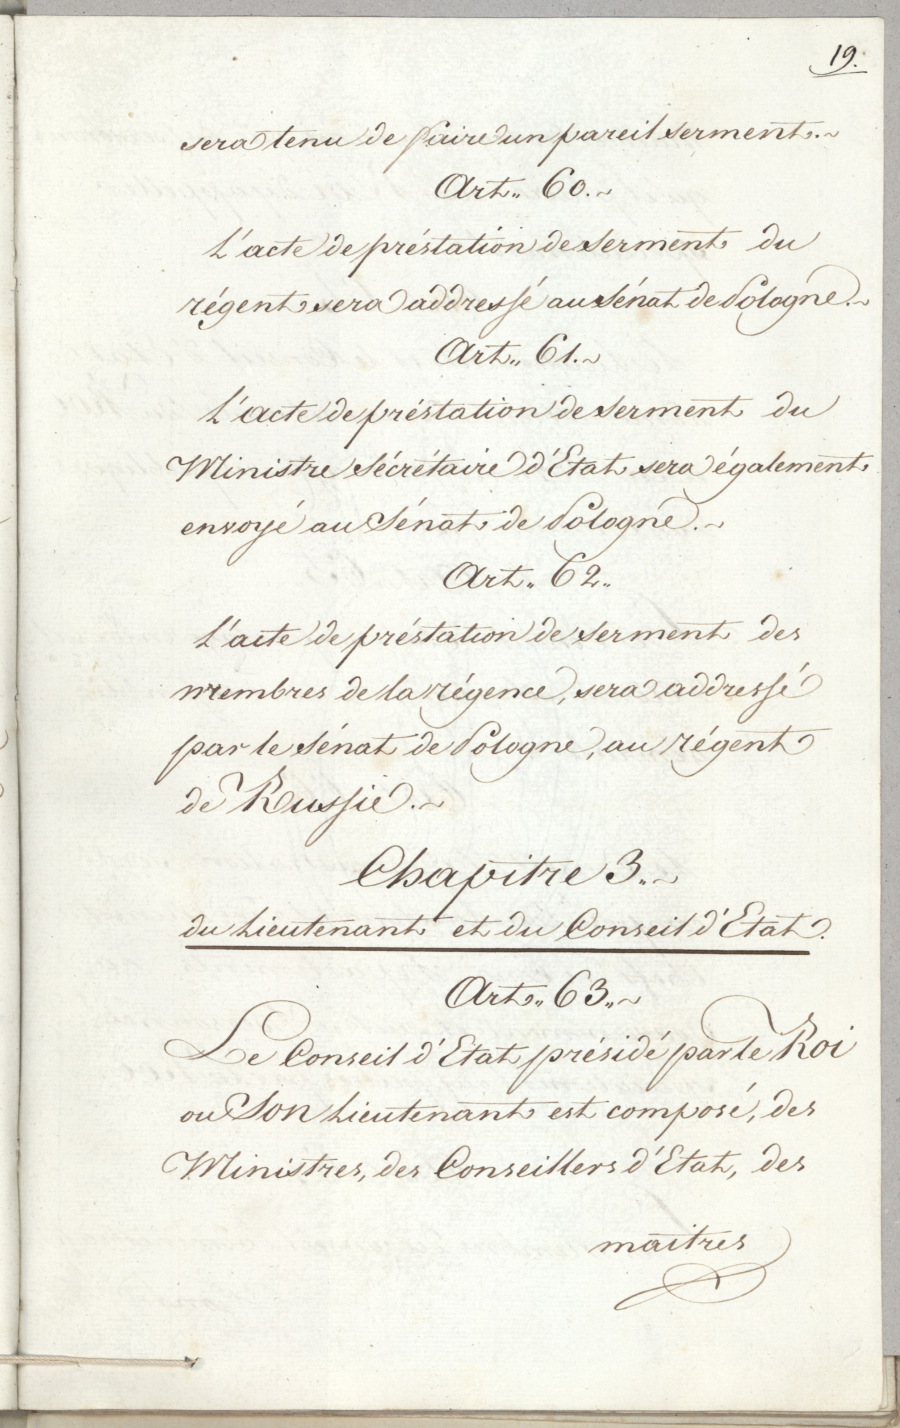 19.
sera tenu de faire un pareil serment.~
Art. 60.~
L'acte de préstation de serment du
régent sera addressé au Sénat de Pologne.~
Art. 61.~
L'acte de préstation de serment du
Ministre Sécrétaire d'Etat sera également
envoyé au Sénat de Pologne.~
Art. 62.
L'acte de préstation de serment des
membres de la régence, sera addressé
par le Sénat de Pologne, au régent
de Russie.~
Chapitre 3.~
du Lieutenant et du Conseil d'Etat.
Art. 63.~
Le Conseil d'Etat présidé par le Roi
ou Son Lieutenant est composé, des
Ministres, des Conseillers d'Etat, des
maitres